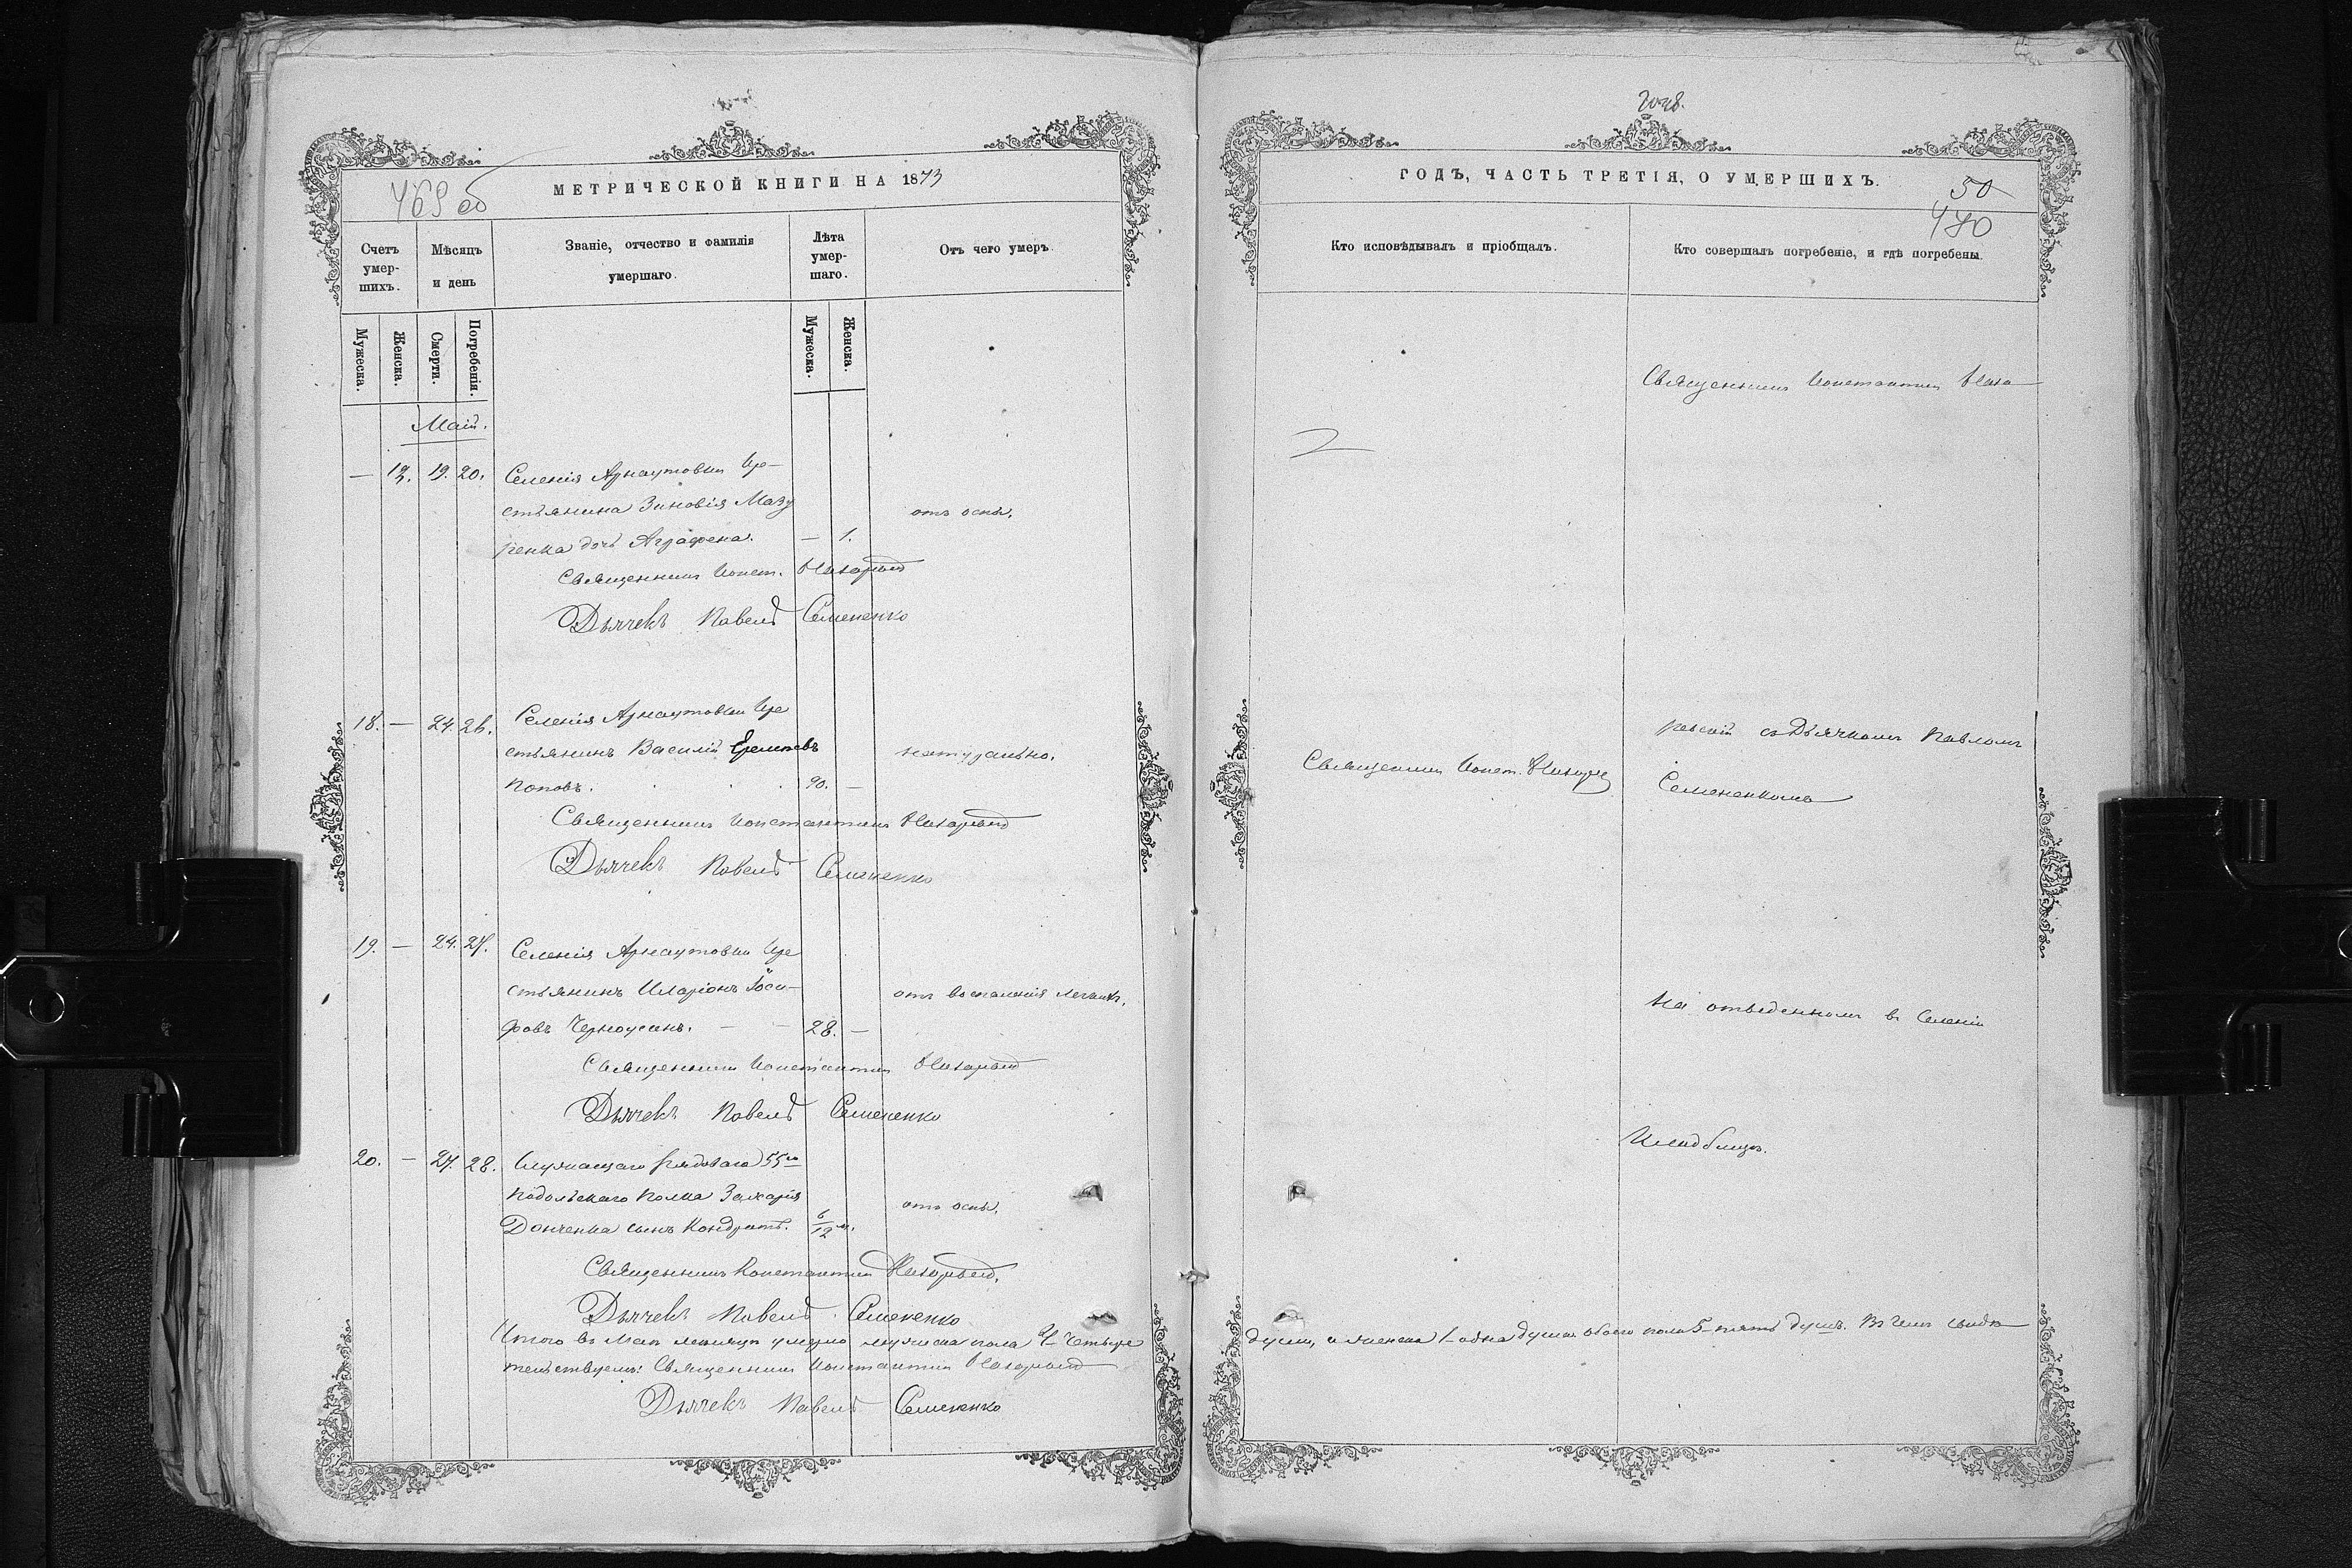 469 об
МЕТРИЧЕСКОЙ КНИГИ НА 1873
Счетъ умер-шихъ.
Мѣсяцъ и день
Званіе, отчество и фамилія умершаго.
Лѣта умер-шаго.
Отъ чего умеръ
Мужеска.
Женска.
Смерти.
Погребенія.
Мужеска.
Женска.
Май.
— 12. 19. 20. Селенія Арнаутовки Кре-
стьянина Зиновія Мазу
ренка дочь Аграфена. — 1. отъ оспы.
Священникъ Конст.
Дьячекъ Павелъ Семененко
18. — 24. 26. Селенія Арнаутовки Кре
стьянинъ Василій
Поповъ. 90. — натурально.
Священникъ Константинъ
Дьячекъ Павелъ Семененко
19. — 24. 27. Селенія Арнаутовки Кре
стьянинъ Иларіонъ Іоси-
фовъ Черноусанъ. — — 28. — отъ воспаленія легкихъ.
Священникъ Константинъ
Дьячекъ Павелъ Семененко
20. — 27. 28. Служащаго рядоваго 55го
Подольскаго Полка Захарія
Донченка сынъ Кондратъ. 6/12 м. отъ оспы.
Священникъ Константинъ
Дьячекъ Павелъ Семененко
Итого въ Маѣ мѣсяцѣ умерло мужеска пола 4 Четыре
тельствуемъ: Священникъ Константинъ
Дьячекъ Павелъ Семененко
50
470
ГОДЪ, ЧАСТЬ ТРЕТІЯ, О УМЕРШИХЪ.
Кто исповѣдывалъ и пріобщалъ.
Кто совершалъ погребеніе, и гдѣ погребены.
Священникъ Константинъ
съ Дьячкомъ Павломъ
Священникъ Конст.
Семененкомъ
На отведенномъ въ Селеніи
Кладбищѣ.
души, а женска 1 одна душа обоего пола 5 пять душъ. Въ чемъ свидѣ